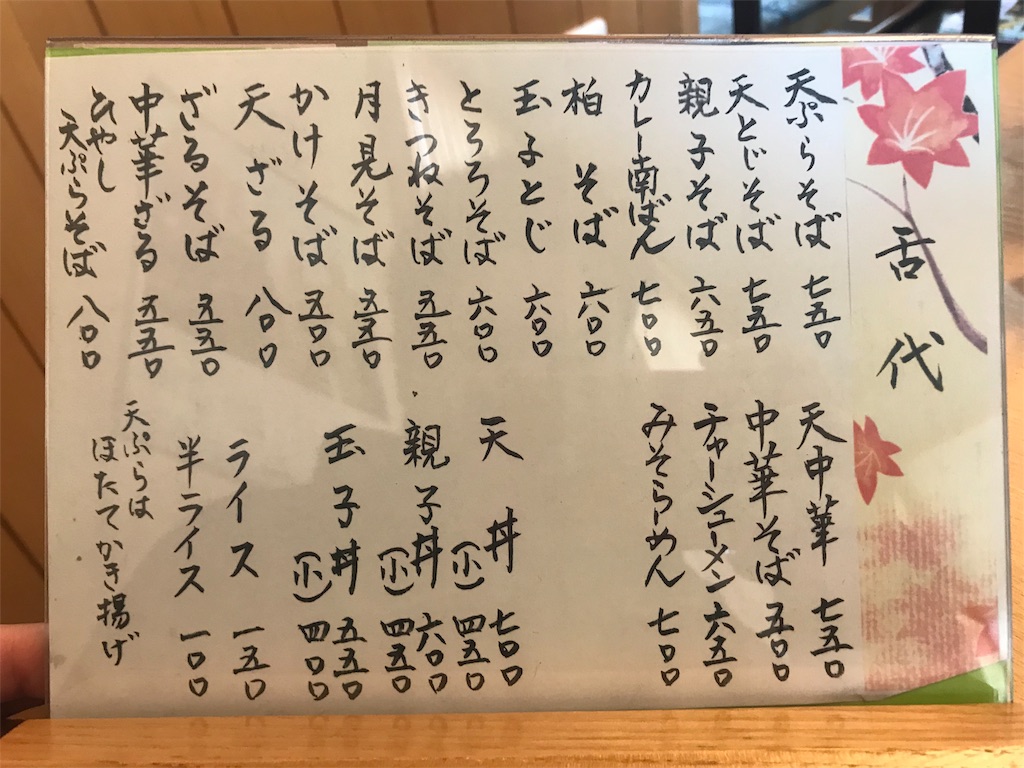 舌代
天ぷらそば 七五〇
天とじそば 七五〇
親子そば 六五〇
カレー南ばん 七〇〇
柏そば 六〇〇
玉子とじ 六〇〇
とろろそば 六〇〇
きつねそば 五五〇
月見そば 五五〇
かけそば 五〇〇
天ざる 八〇〇
ざるそば 五五〇
中華ざる 五五〇
ひやし
天ぷらそば 八〇〇
天中華 七五〇
中華そば 五〇〇
チャーシューメン 六五〇
みそらーめん 七〇〇
天丼 七〇〇
(小) 四五〇
親子丼 六〇〇
(小) 四五〇
玉子丼 五五〇
(小) 四〇〇
ライス 一五〇
半ライス 一〇〇
天ぷらは
ほたてかき揚げ